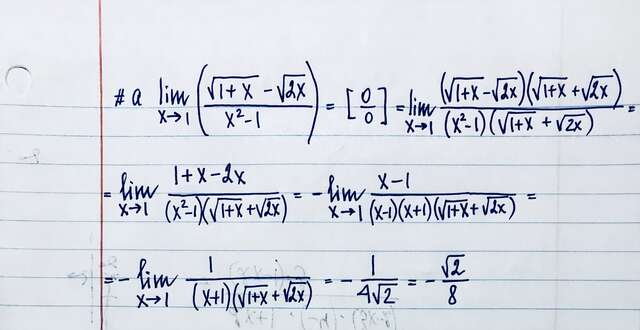 #a lim x→1 ((√(1+x) - √(2x))/(x²-1)) = [0/0] = lim x→1 ((√(1+x) - √(2x))(√(1+x) + √(2x)))/((x²-1)(√(1+x) + √(2x))) =
= lim x→1 (1+x-2x)/((x²-1)(√(1+x) + √(2x))) = - lim x→1 (x-1)/((x-1)(x+1)(√(1+x) + √(2x))) =
= - lim x→1 1/((x+1)(√(1+x) + √(2x))) = - 1/(4√2) = - √2/8